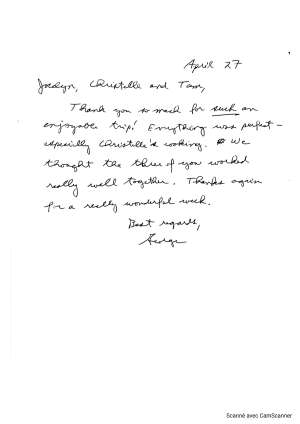 April 27
Jocelyn, Christelle and Tam,
Thank you so much for such an
enjoyable trip! Everything was perfect –
especially Christelle's cooking. We
thought the three of you worked
really well together. Thanks again
for a really wonderful week.
Best regards,
George
Scanné avec CamScanner